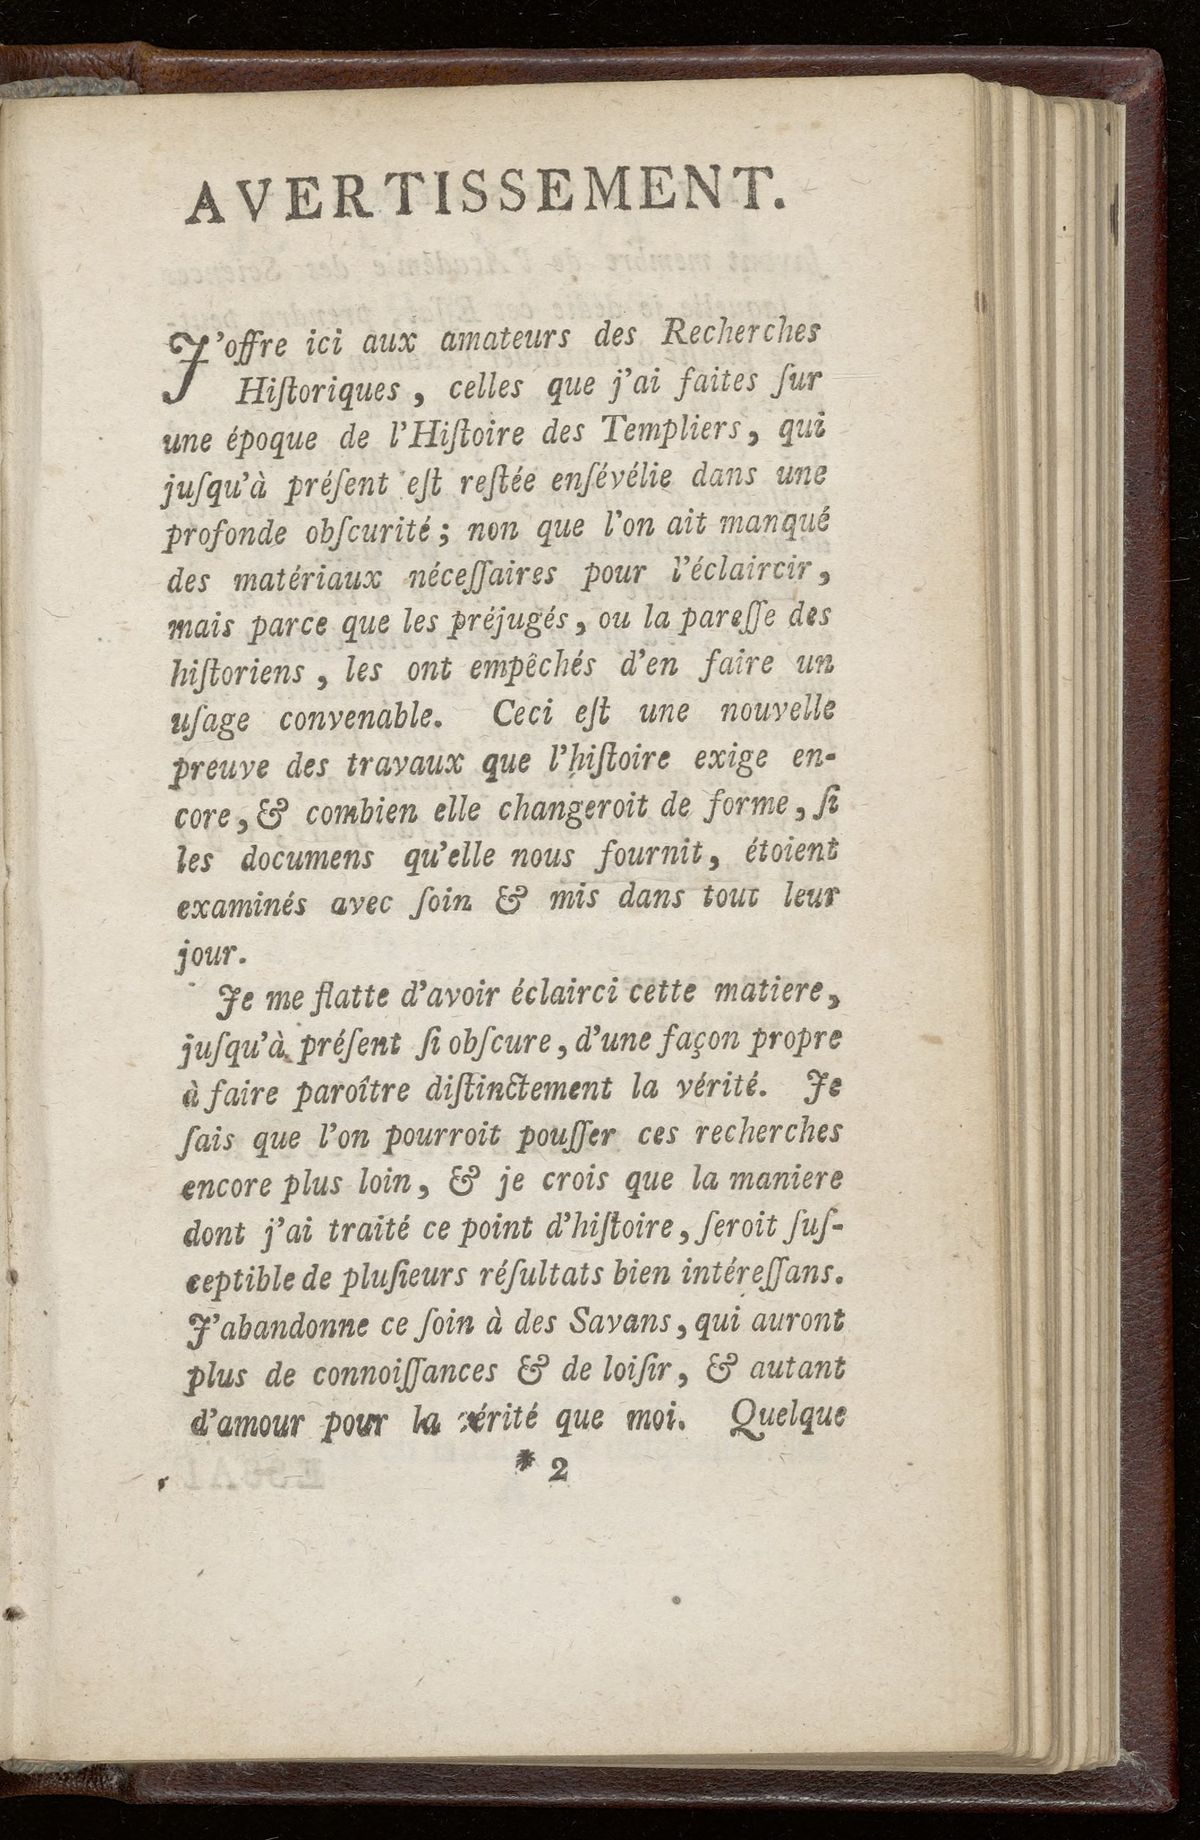 AVERTISSEMENT.
J'offre ici aux amateurs des Recherches
Hiſtoriques, celles que j'ai faites ſur
une époque de l'Hiſtoire des Templiers, qui
juſqu'à préſent eſt reſtée enſévélie dans une
profonde obſcurité; non que l'on ait manqué
des matériaux néceſſaires pour l'éclaircir,
mais parce que les préjugés, ou la pareſſe des
hiſtoriens, les ont empêchés d'en faire un
uſage convenable. Ceci eſt une nouvelle
preuve des travaux que l'hiſtoire exige en-
core, & combien elle changeroit de forme, ſi
les documens qu'elle nous fournit, étoient
examinés avec ſoin & mis dans tout leur
jour.
Je me flatte d'avoir éclairci cette matiere,
juſqu'à préſent ſi obſcure, d'une façon propre
à faire paroître diſtinctement la vérité. Je
ſais que l'on pourroit pouſſer ces recherches
encore plus loin, & je crois que la maniere
dont j'ai traité ce point d'hiſtoire, ſeroit ſuſ-
ceptible de pluſieurs réſultats bien intéreſſans.
J'abandonne ce ſoin à des Savans, qui auront
plus de connoiſſances & de loiſir, & autant
d'amour pour la vérité que moi. Quelque
* 2